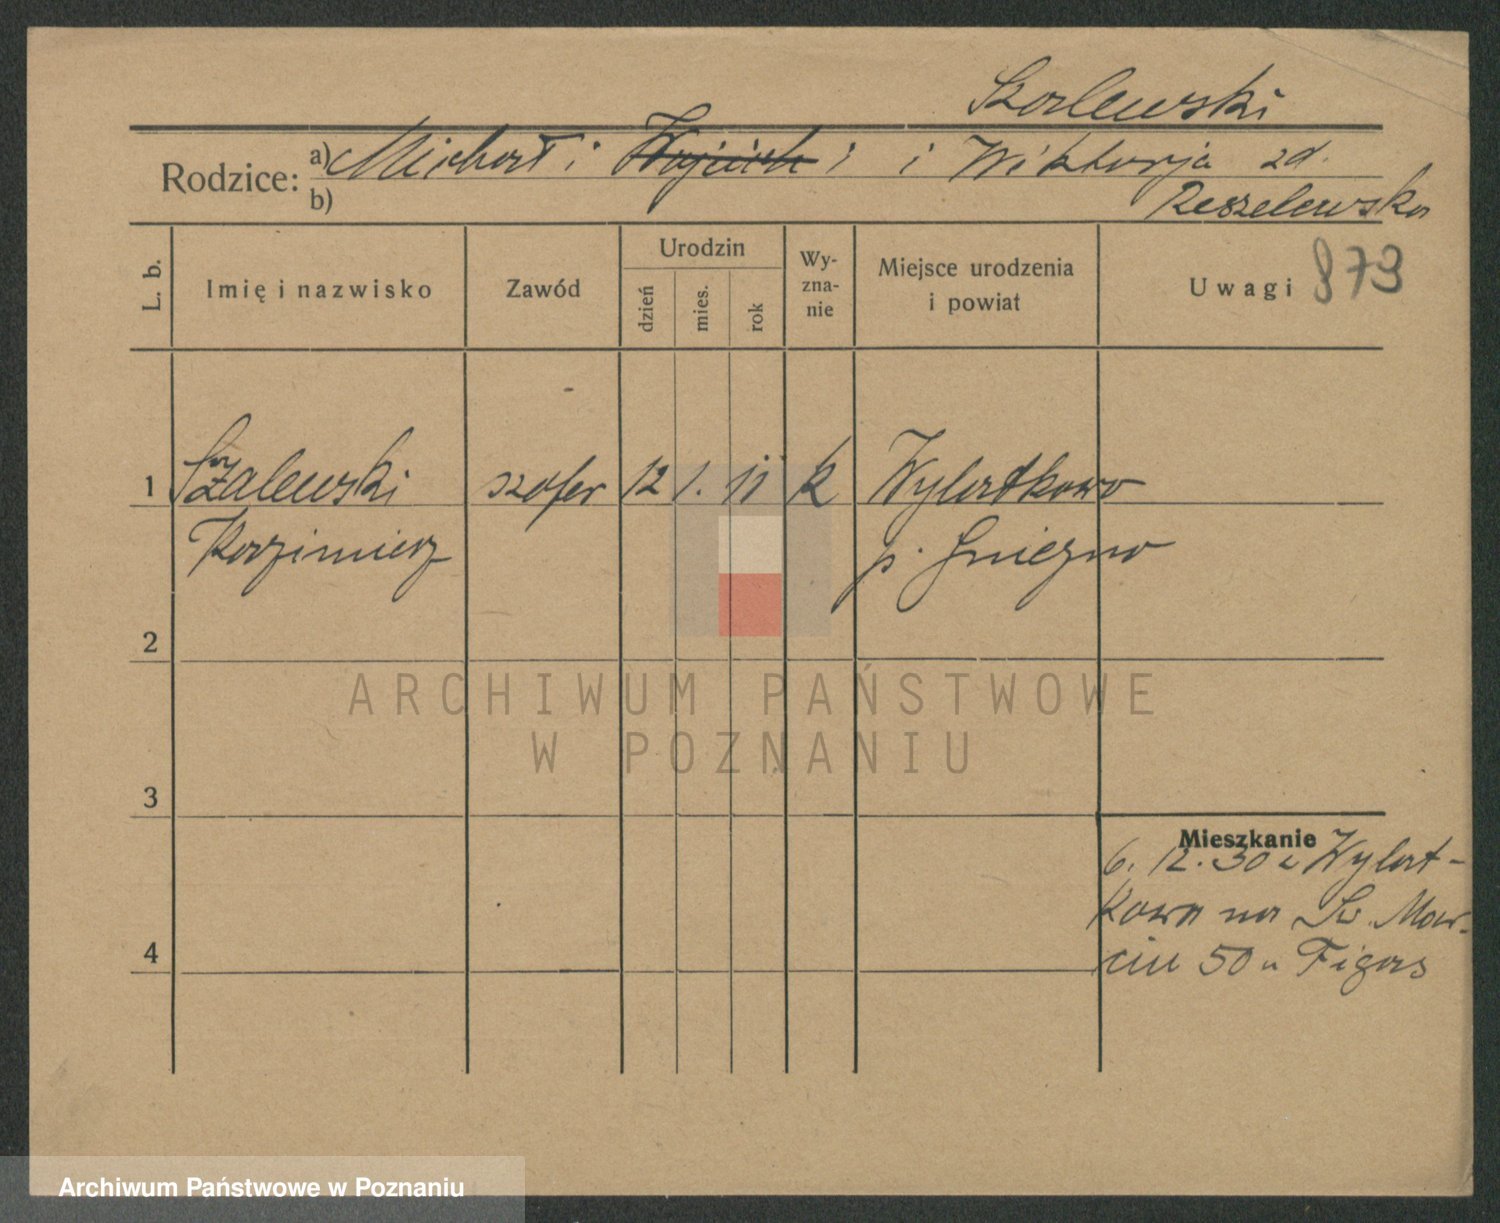 Szalewski
Rodzice: a) Michał i Wojciech i i Wiktorja zd.
b) Reszelewska
L. b. Imię i nazwisko Zawód Urodzin dzień mies. rok Wy-zna-nie Miejsce urodzenia i powiat Uwagi 873
1 Szalewski szofer 12 1. 11 k Wylatkowo
Kazimierz p. Gniezno
2
3
4
Mieszkanie
6. 12. 30 z Wylat-
kowa na Św. Mar-
cin 50 u Figas
ARCHIWUM PAŃSTWOWE
W POZNANIU
Archiwum Państwowe w Poznaniu